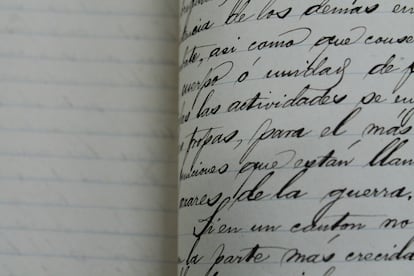 cia de los demás en
te, asi como que conse
uerpo ó unidad de
as las actividades se
tropas, para el más
iciones que están llan
zares de la guerra.
Si en un canton no
la parte más crecida